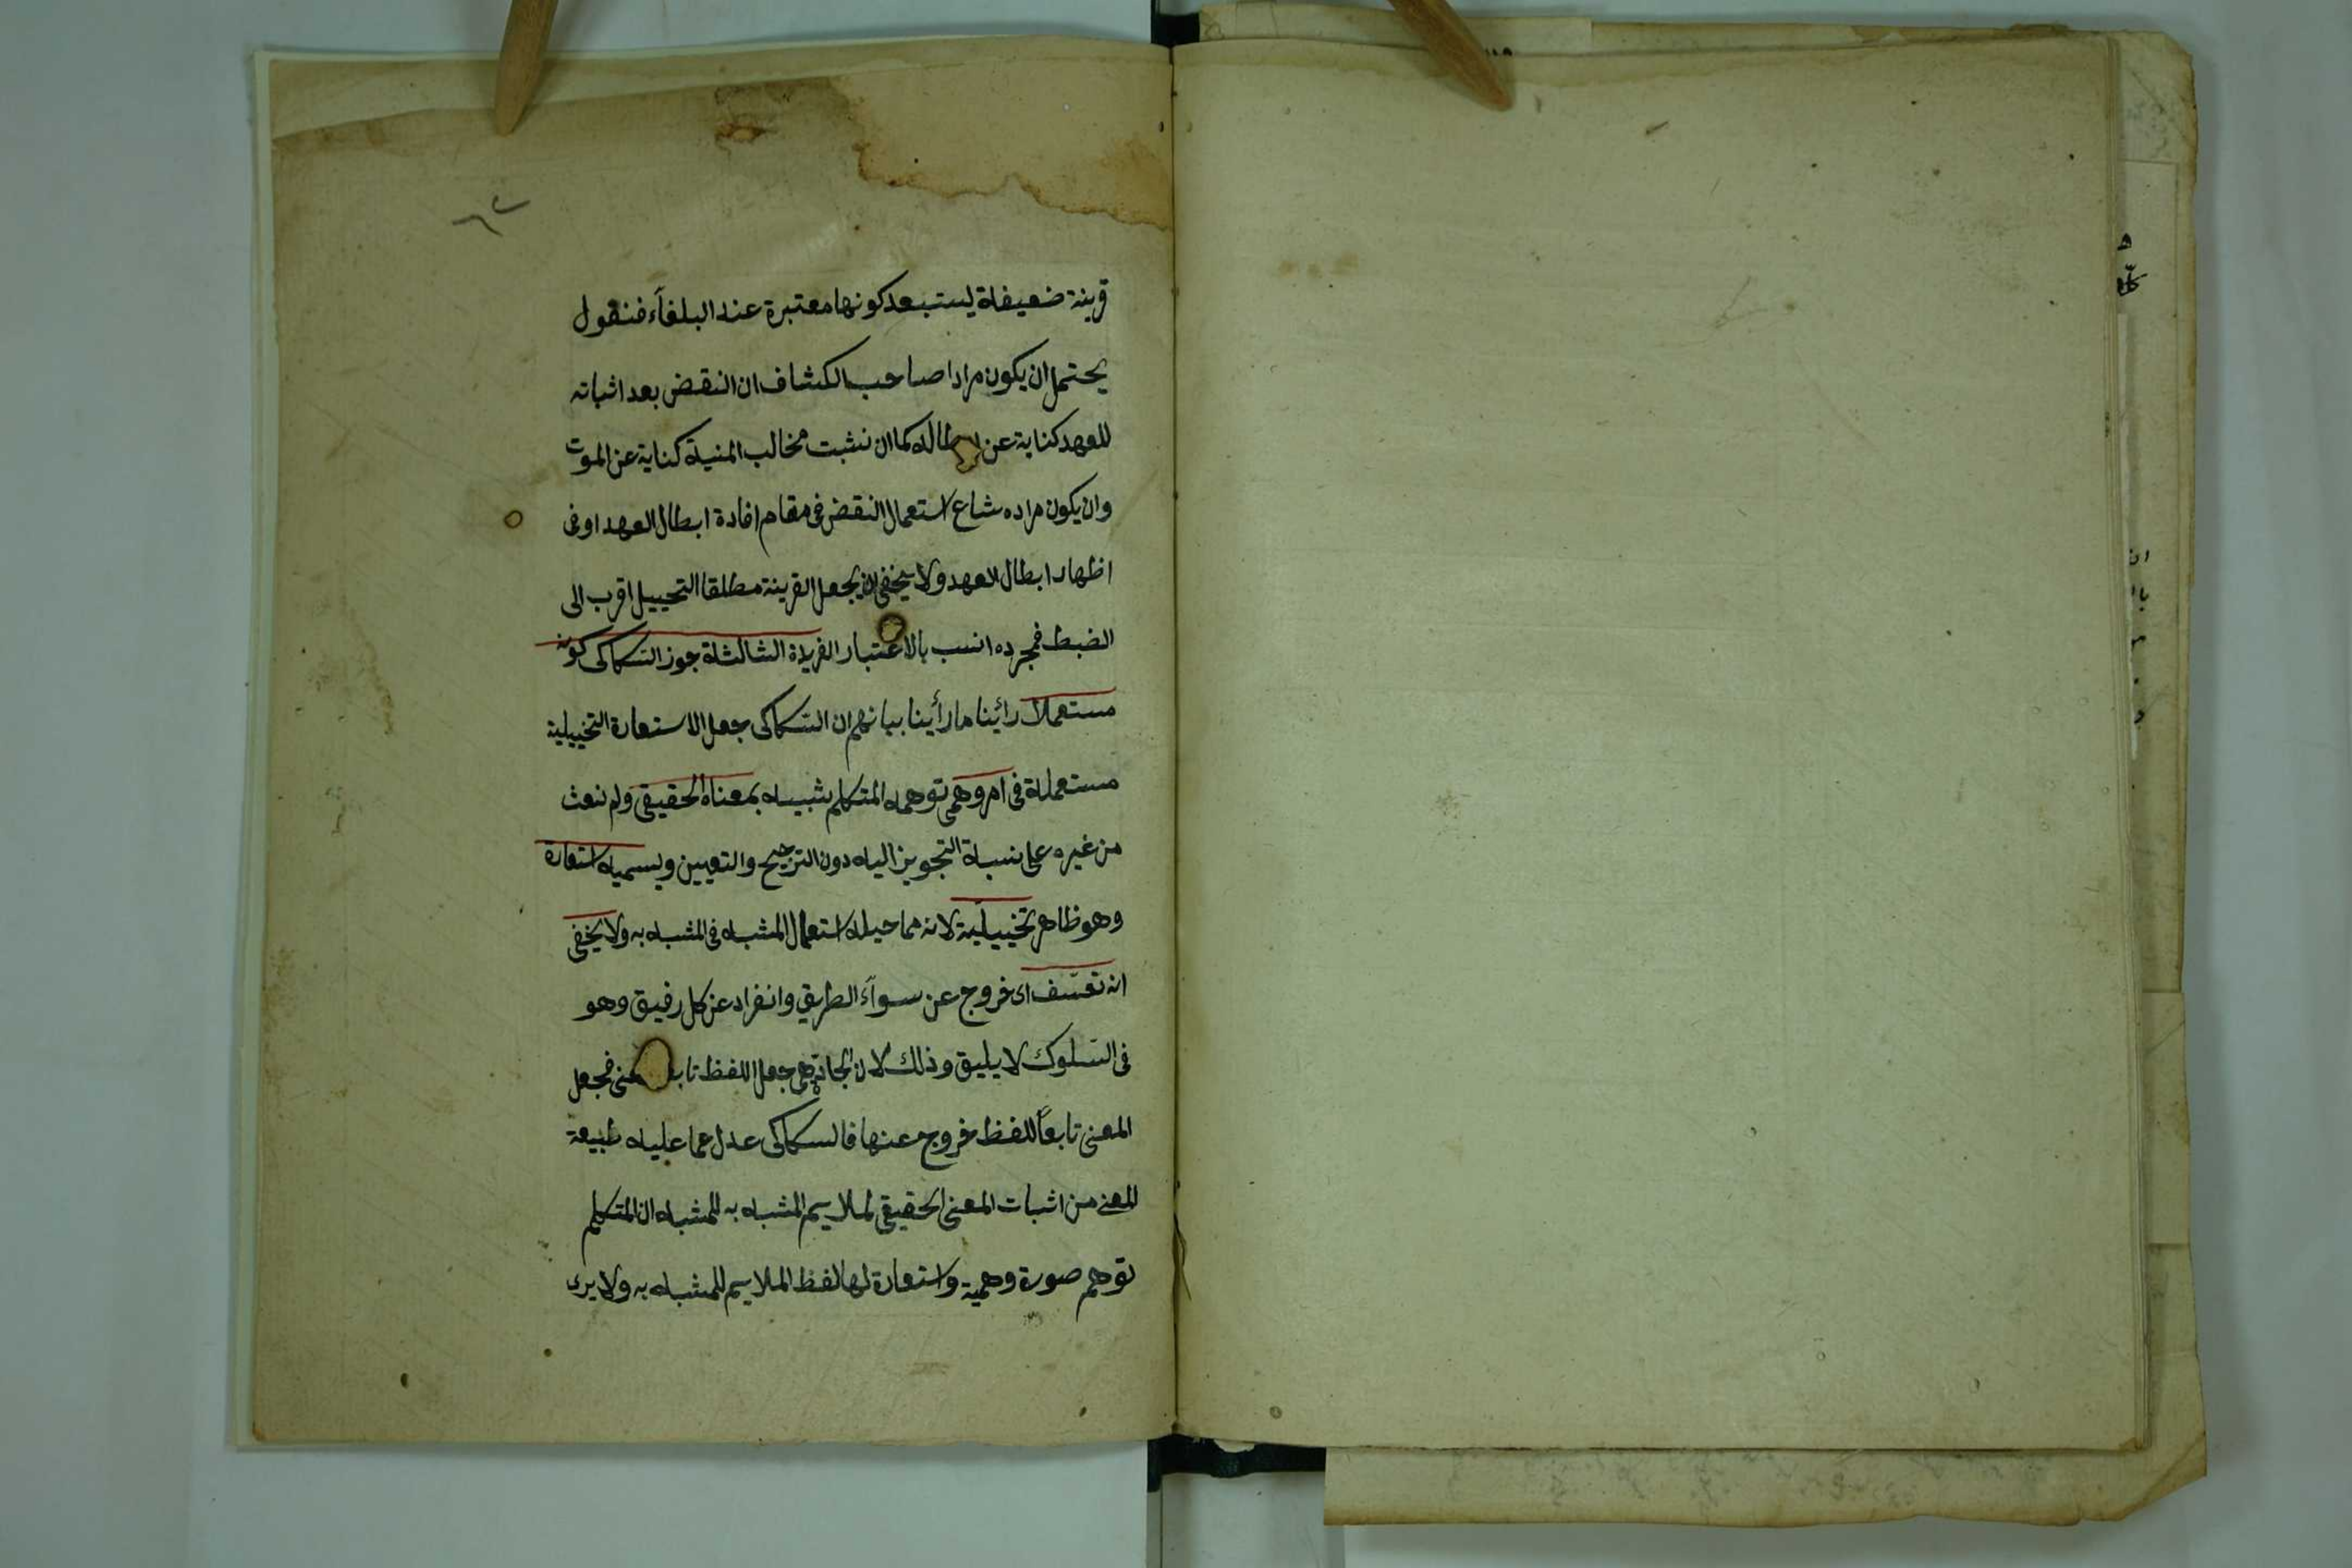 ٦٢
قرينة ضعيفة يستبعد كونها معتبرة عند البلغاء فنقول
يحتمل ان يكون مراد صاحب الكشاف ان النقض بعد اثباته
للعهد كناية عن ابطاله كما ان نشبت مخالب المنية كناية عن الموت
وان يكون مراده شاع استعمال النقض في مقام افادة ابطال العهد او في
اظهار ابطال العهد ولا يخفى ان يجعل القرينة مطلقا التخييل اقرب الى
الضبط فمجرده انسب بالاعتبار الفريدة الثالثة جوز السكاكى كونه
مستعملا رائينا ما رأينا بيانهم ان السكاكى جعل الاستعارة التخييلية
مستعملة في امر وهمى توهمه المتكلم شبيه بمعناه الحقيقى ولم نعث
من غيره على نسبة التجويز اليه دون الترجيح والتعيين ويسميه استعارة
وهو ظاهر تخييلية لانه مما حيله استعمال المشبه في المشبه به ولا يخفى
انه تعسّف اى خروج عن سوآء الطريق وانفراد عن كل رفيق وهو
في السّلوك لا يليق وذلك لان الجادّة هى جعل اللفظ تابعا
فجعل
المعنى تابعاً للفظ خروج عنها فالسكاكى عدل عما عليه طبيعة
المعنى من اثبات المعنى الحقيقى لملايم المشبه به للمشبه ان المتكلم
توهم صورة وهمية واستعارة لها لفظ الملايم للمشبه به ولا يرى